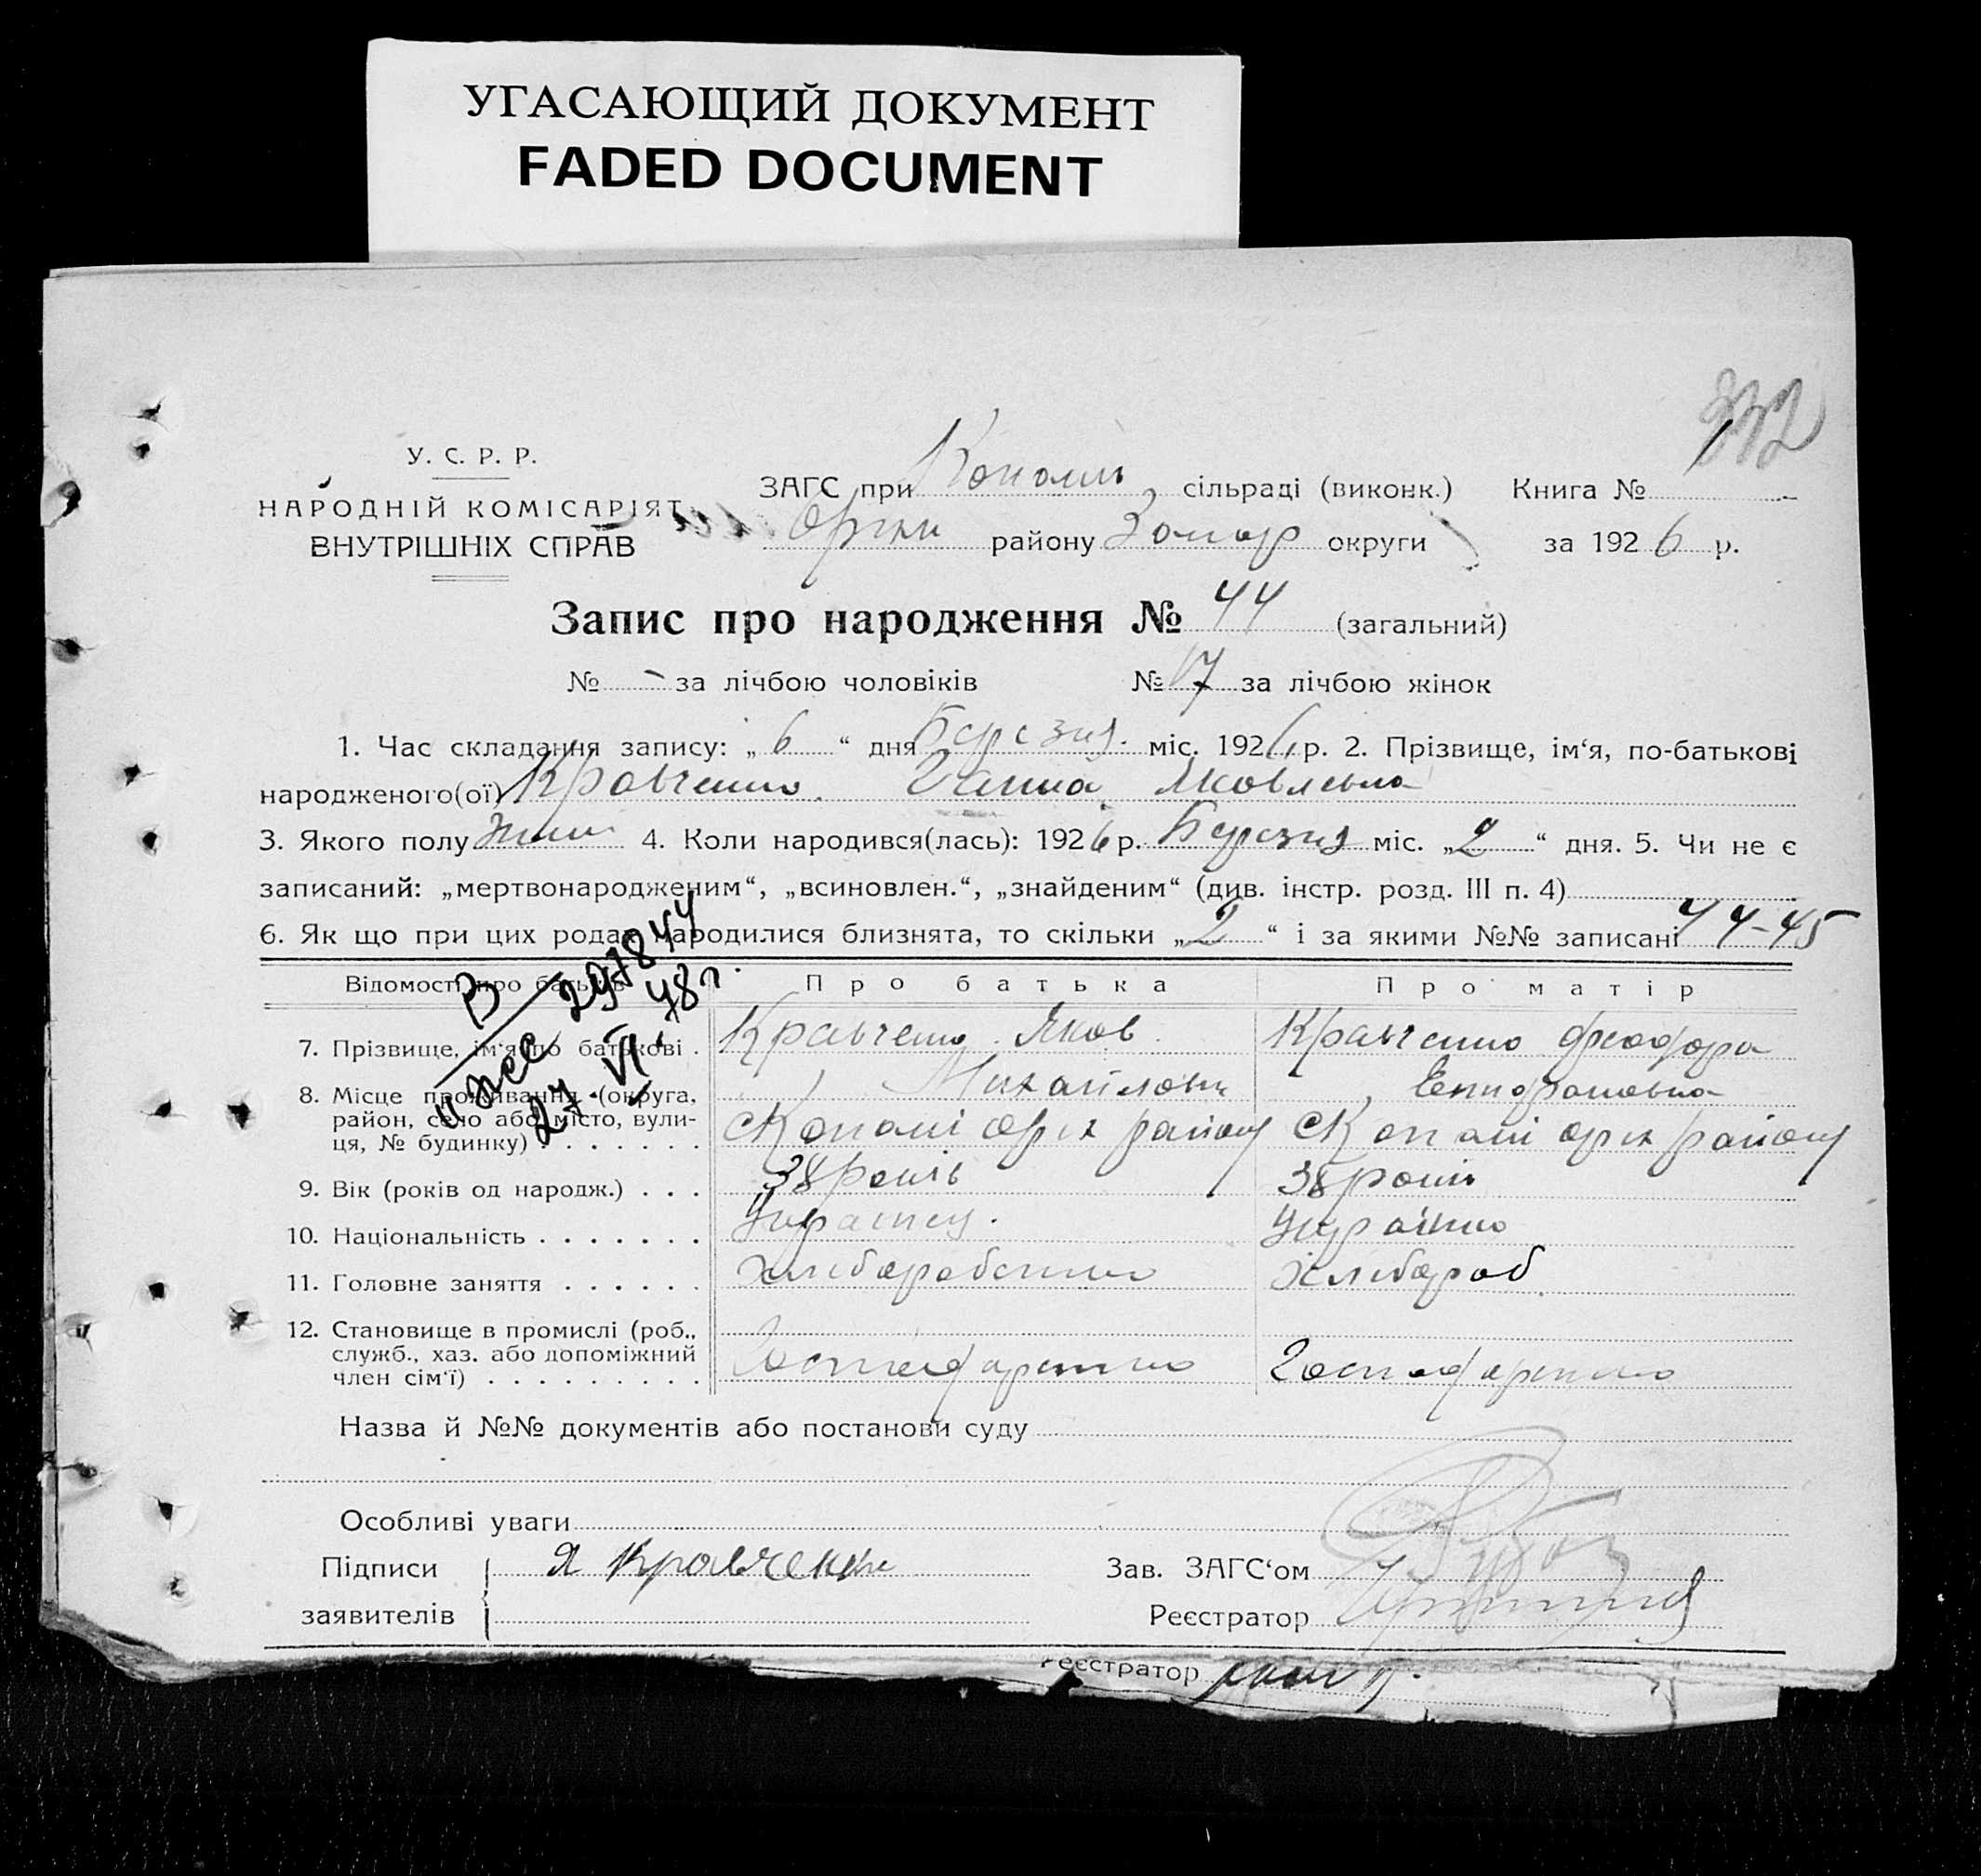 УГАСАЮЩИЙ ДОКУМЕНТ
FADED DOCUMENT
332
У. С. Р. Р.
НАРОДНІЙ КОМІСАРІЯТ
ВНУТРІШНІХ СПРАВ
ЗАГС при сільраді (виконк.) Книга №
району округи за 1926 р.
Запис про народження № 44 (загальний)
№ - за лічбою чоловіків № 17 за лічбою жінок
1. Час складання запису: „6“ дня Березня міс. 1926 р. 2. Прізвище, ім‘я, по-батькові
народженого(ої) Кравченко Ганна Яковлевна
3. Якого полу жин 4. Коли народився(лась): 1926 р. Березня міс. „2“ дня. 5. Чи не є
записаний: „мертвонародженим“, „всиновлен.“, „знайденим“ (див. інстр. розд. III п. 4)
6. Як що при цих родах народилися близнята, то скільки „2“ і за якими №№ записані 44-45
В 297844
27. VI. 48 г.
Відомості про батьків Про батька Про матір
7. Прізвище, ім‘я по батькові . Кравченко Яков Кравченко Феодора
Михайлович
8. Місце проживання (округа,
район, село або місто, вули-
ця, № будинку) . . . . . . . с Копані оріх району с Копані оріх району
9. Вік (років од народж.) . . . 38 років 38 років
10. Національність . . . . . . . Украінец. Украінка
11. Головне заняття . . . . . . Хліборобство Хлібороб
12. Становище в промислі (роб.,
служб., хаз. або допоміжний
член сім‘ї) . . . . . . . . .
Назва й №№ документів або постанови суду
Особливі уваги
Підписи Я Кравченко Зав. ЗАГС‘ом
заявителів Реєстратор
Реєстратор